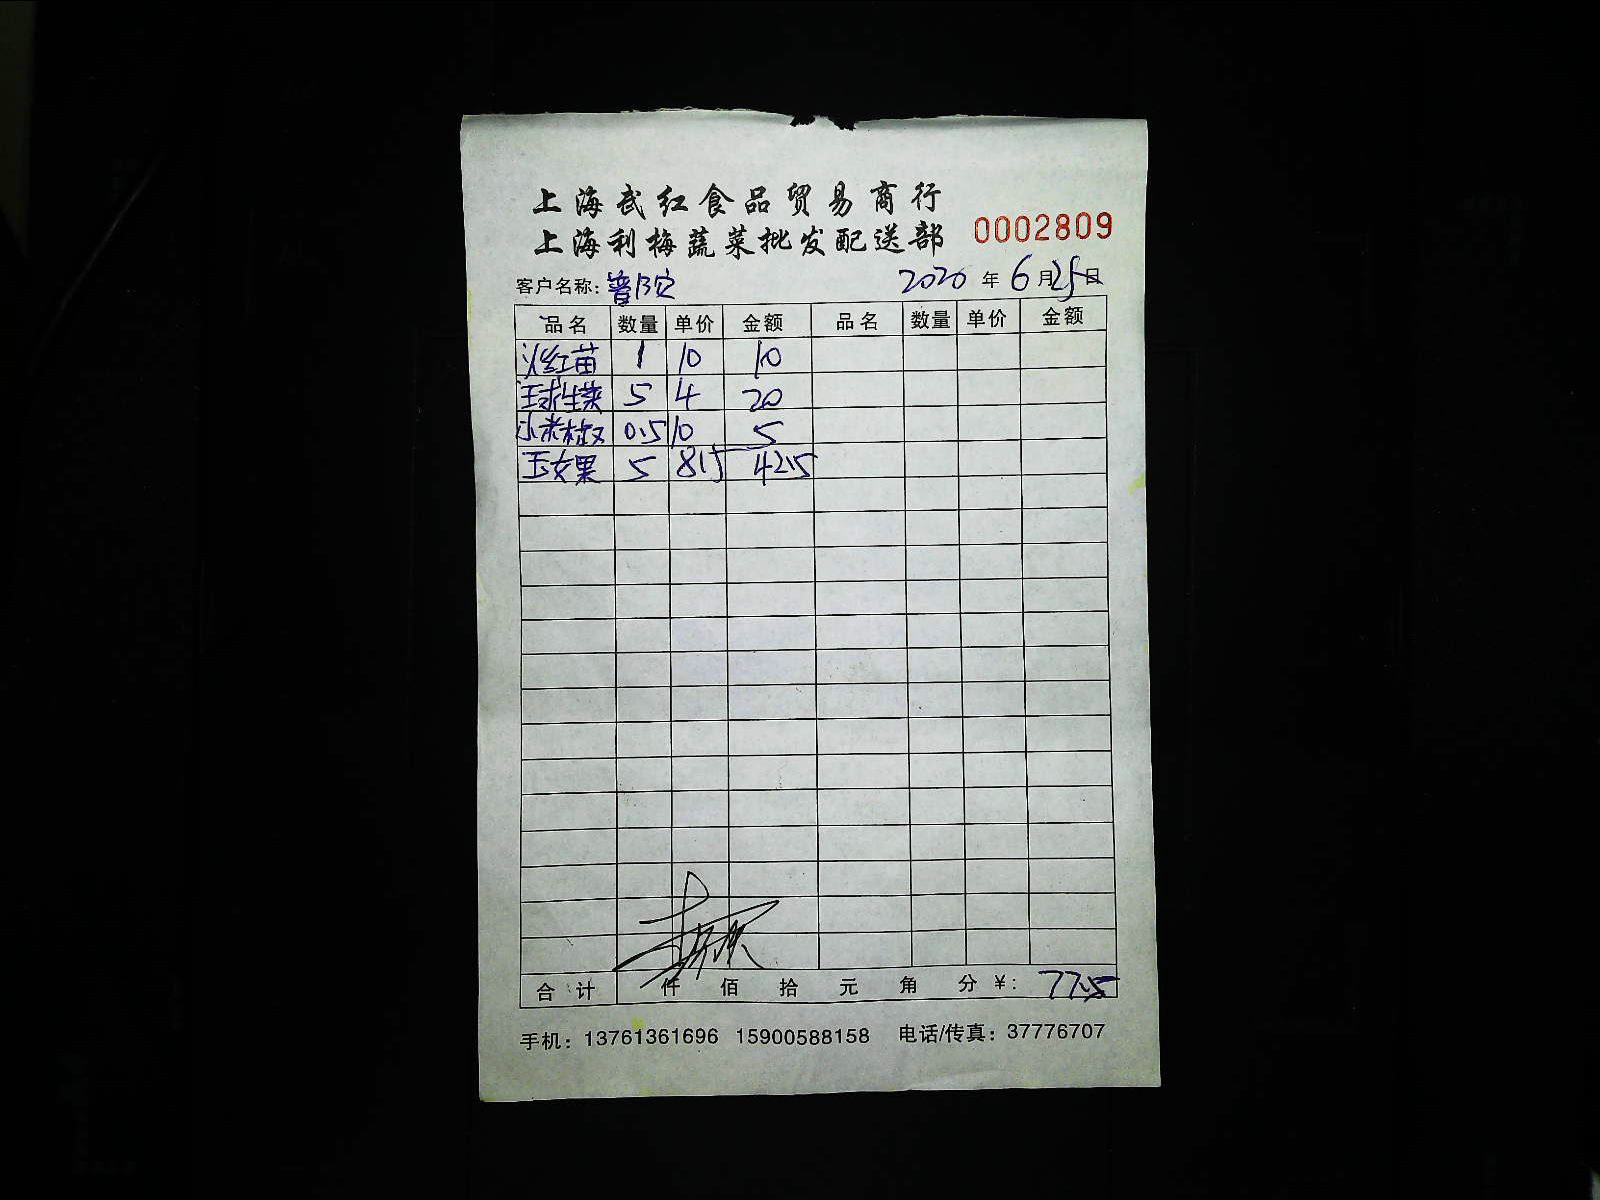 上海武红食品贸易商行
上海利梅蔬菜批发配送部 0002809
客户名称：普陀 2020年6月25日
品名 数量 单价 金额 品名 数量 单价 金额
火红苗 1 10 10
球生菜 5 4 20
小米椒 0.5 10 5
玉女果 5 8.5 42.5
合计 仟 佰 拾 元 角 分 ￥：77.5
手机：13761361696 15900588158 电话/传真：37776707